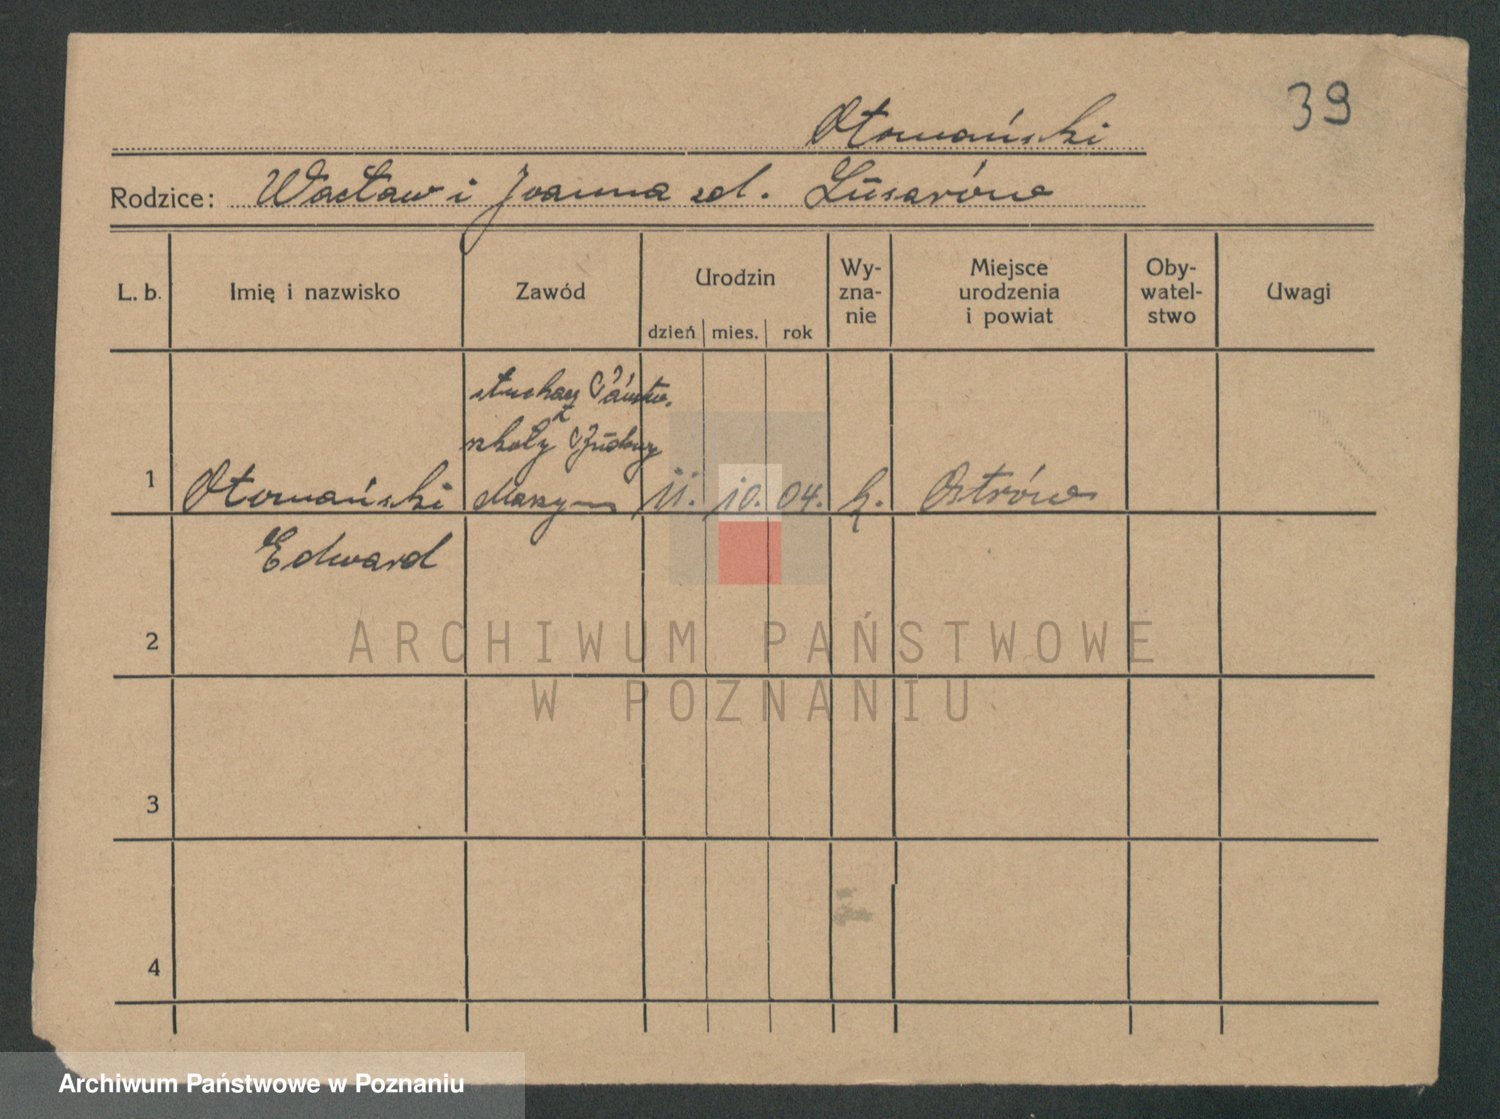 39
Otomański
Rodzice: Wacław i Joanna zd. Lusarów
L. b.
Imię i nazwisko
Zawód
Urodzin
dzień
mies.
rok
Wy-
zna-
nie
Miejsce
urodzenia
i powiat
Oby-
watel-
stwo
Uwagi
słuchacz Państw.
szkoły Budowy
Maszyn
1
Otomański
11. 10. 04.
k.
Ostrów
Edward
2
ARCHIWUM PAŃSTWOWE
W POZNANIU
3
4
Archiwum Państwowe w Poznaniu